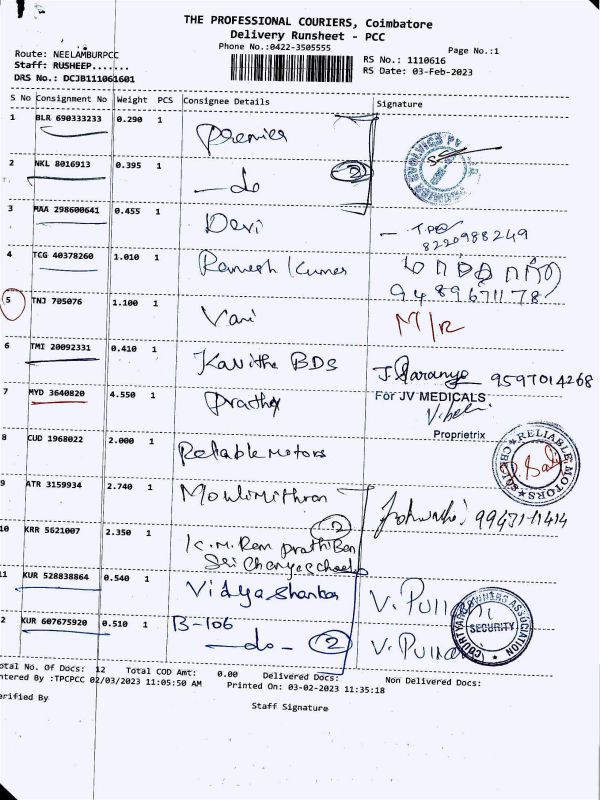 THE PROFESSIONAL COURIERS, Coimbatore
Delivery Runsheet - PCC
Phone No.:0422-3505555
Page No.:1
Route: NEELAMBURPCC
Staff: RUSHEEP.......
DRS No.: DCJB111061601
RS No.: 1110616
RS Date: 03-Feb-2023
S No Consignment No Weight PCS Consignee Details Signature
1 BLR 690333233 0.290 1 Premier
2 NKL 8016913 0.395 1 — do (2)
3 MAA 298600641 0.455 1 Devi
8220988249
4 TCG 40378260 1.010 1 Ramesh Kumar
9489671178
5 TNJ 705076 1.100 1 Vani M/R
6 TMI 20092331 0.410 1 Kavitha BDS J. Saranya 9597014268
7 MYD 3640820 4.550 1
For JV MEDICALS
Proprietrix
8 CUD 1968022 2.000 1 Reliable Motors
RELIABLE MOTORS
9 ATR 3159934 2.740 1 Moulimithran
(2)
10 KRR 5621007 2.350 1 K.M. Ram
11 KUR 528838864 0.540 1 Vidya Shankar
2 KUR 607675920 0.510 1 B-106
— do — (2)
COURTYARD OWNERS ASSOCIATION
SECURITY
otal No. Of Docs: 12 Total COD Amt: 0.00 Delivered Docs: Non Delivered Docs:
ntered By :TPCPCC 02/03/2023 11:05:50 AM Printed On: 03-02-2023 11:35:18
erified By
Staff Signature